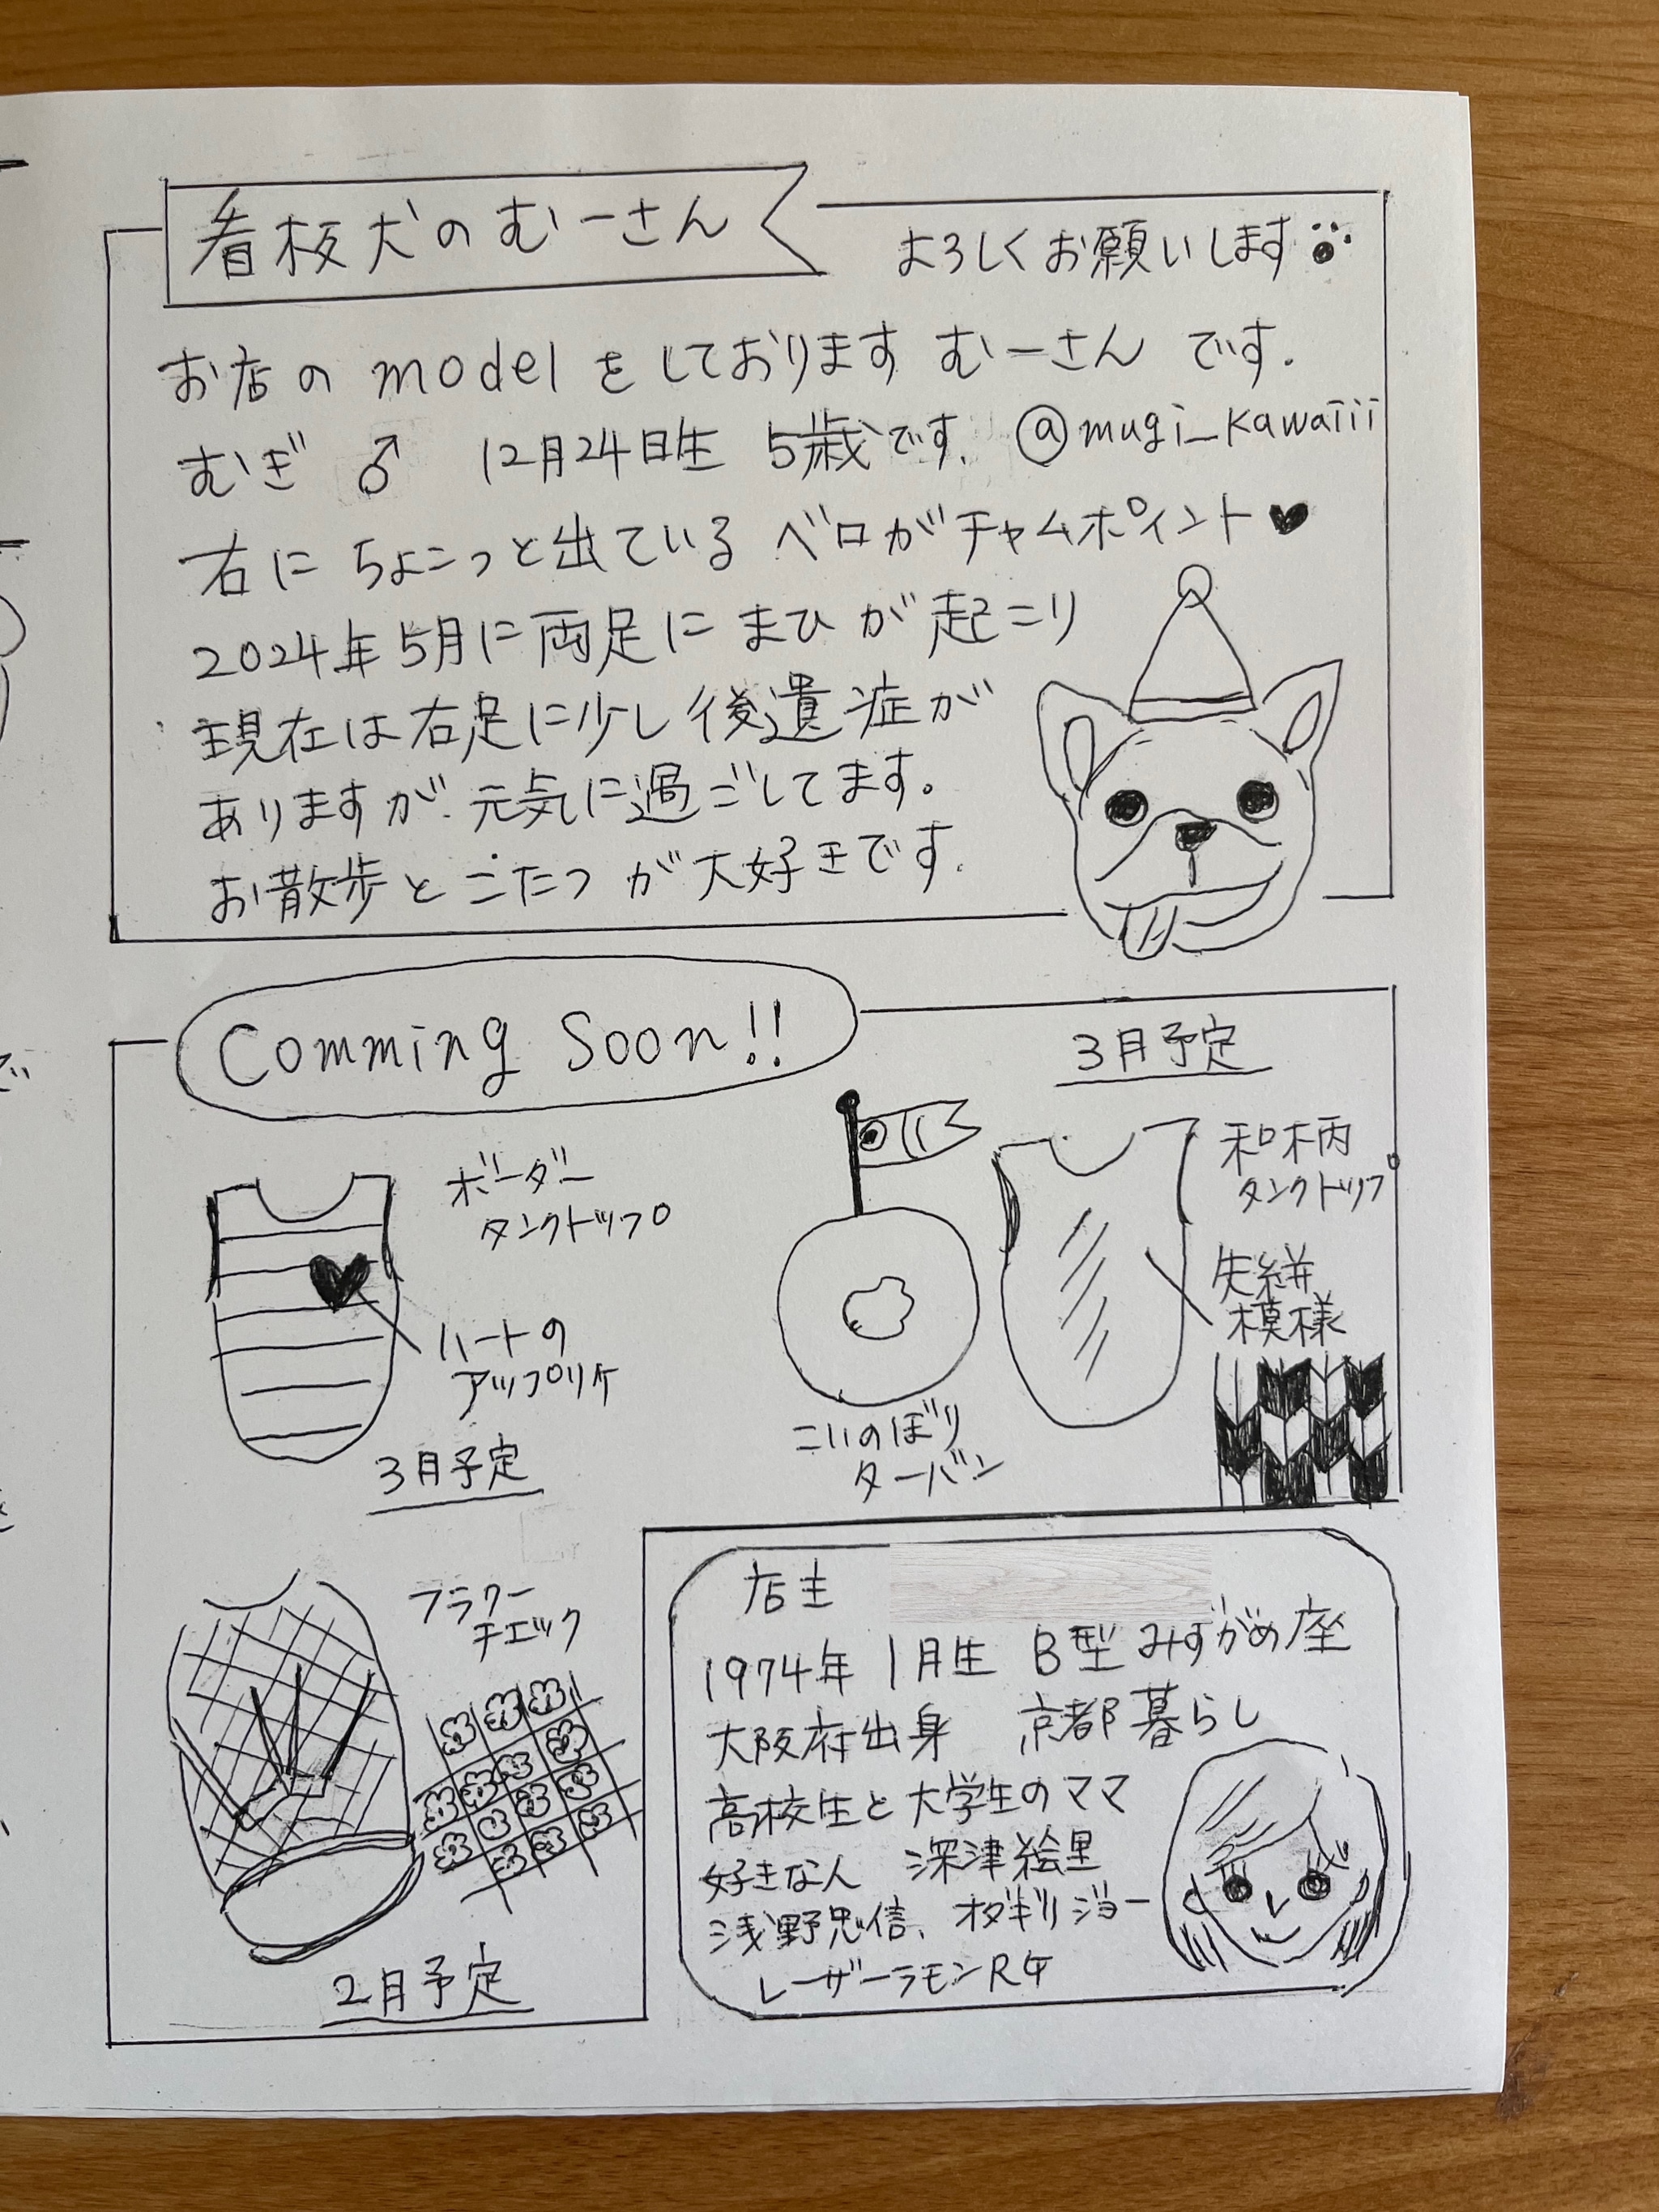 看板犬のむーさん
よろしくお願いします
お店の model をしております むーさん です.
むぎ ♂ 12月24日生 5歳です. @mugi_kawaiii
右に ちょこっと出ている ベロがチャムポイント♥
2024年5月に両足に まひ が 起こり
現在は右足に少し後遺症が
ありますが 元気に過ごしてます。
お散歩と こたつ が大好きです.
Comming Soon!!
3月予定
ボーダー
タンクトップ
ハートの
アップリケ
3月予定
こいのぼり
ターバン
和柄
タンクトップ
矢絣
模様
フラワー
チェック
2月予定
店主
1974年 1月生 B型 みずがめ座
大阪府出身 京都暮らし
高校生と大学生のママ
好きな人 深津絵里
浅野忠信、オダギリジョー
レーザーラモンRG